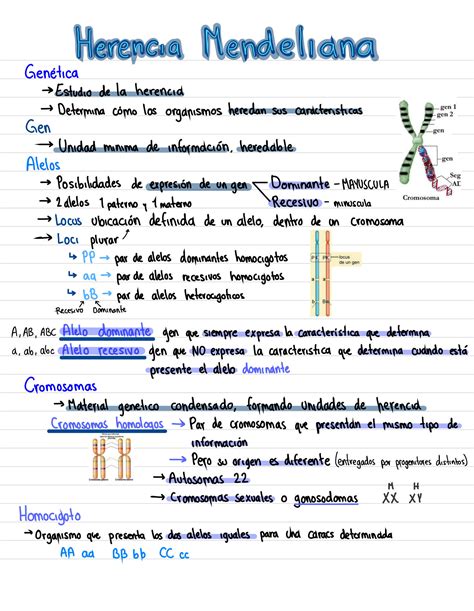 Herencia Mendeliana
Genética
→ Estudio de la herencia
→ Determina cómo los organismos heredan sus características
Gen
→ Unidad minima de información, heredable
Alelos
→ Posibilidades de expresión de un gen
Dominante - MAYUSCULA
Recesivo - minuscula
→ 2 alelos 1 paterno y 1 materno
→ Locus ubicación definida de un alelo, dentro de un cromosoma
→ Loci plurar
↳ PP → par de alelos dominantes homocigotos
↳ aa → par de alelos recesivos homocigotos
↳ bB → par de alelos heterocigoticos
Recesivo Dominante
gen 1
gen 2
gen
gen
Cromosoma
locus
de un gen
A, AB, ABC Alelo dominante gen que siempre expresa la característica que determina
a, ab, abc Alelo recesivo gen que NO expresa la característica que determina cuando está
presente el alelo dominante
Cromosomas
→ Material genetico condensado, formando unidades de herencia
Cromosomas homologos → Par de cromosomas que presentan el mismo tipo de
información
→ Pero su origen es diferente (entregados por progenitores distintos)
→ Autosomas 22
→ Cromosomas sexuales o gonosodomas
M H
XX XY
Homocigoto
→ Organismo que presenta los dos alelos iguales para una caracs determinada
AA aa BB bb CC cc